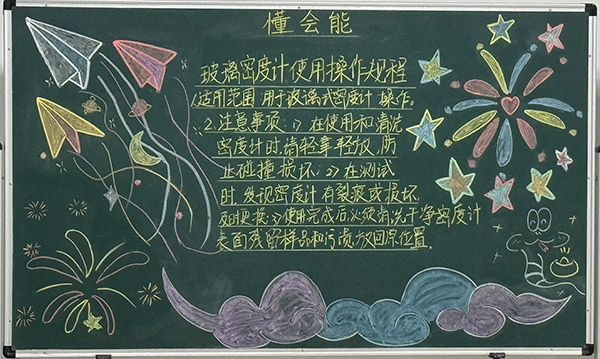 懂会能
玻璃密度计使用操作规程
1.适用范围 用于玻璃式密度计 操作。
2.注意事项:1)在使用和清洗
密度计时,请轻拿轻放,防
止碰撞损坏;2)在测试
时,发现密度计有裂痕或损坏
及时更换;3)使用完成后,必须清洗干净密度计
表面残留样品和污渍,放回原位置.